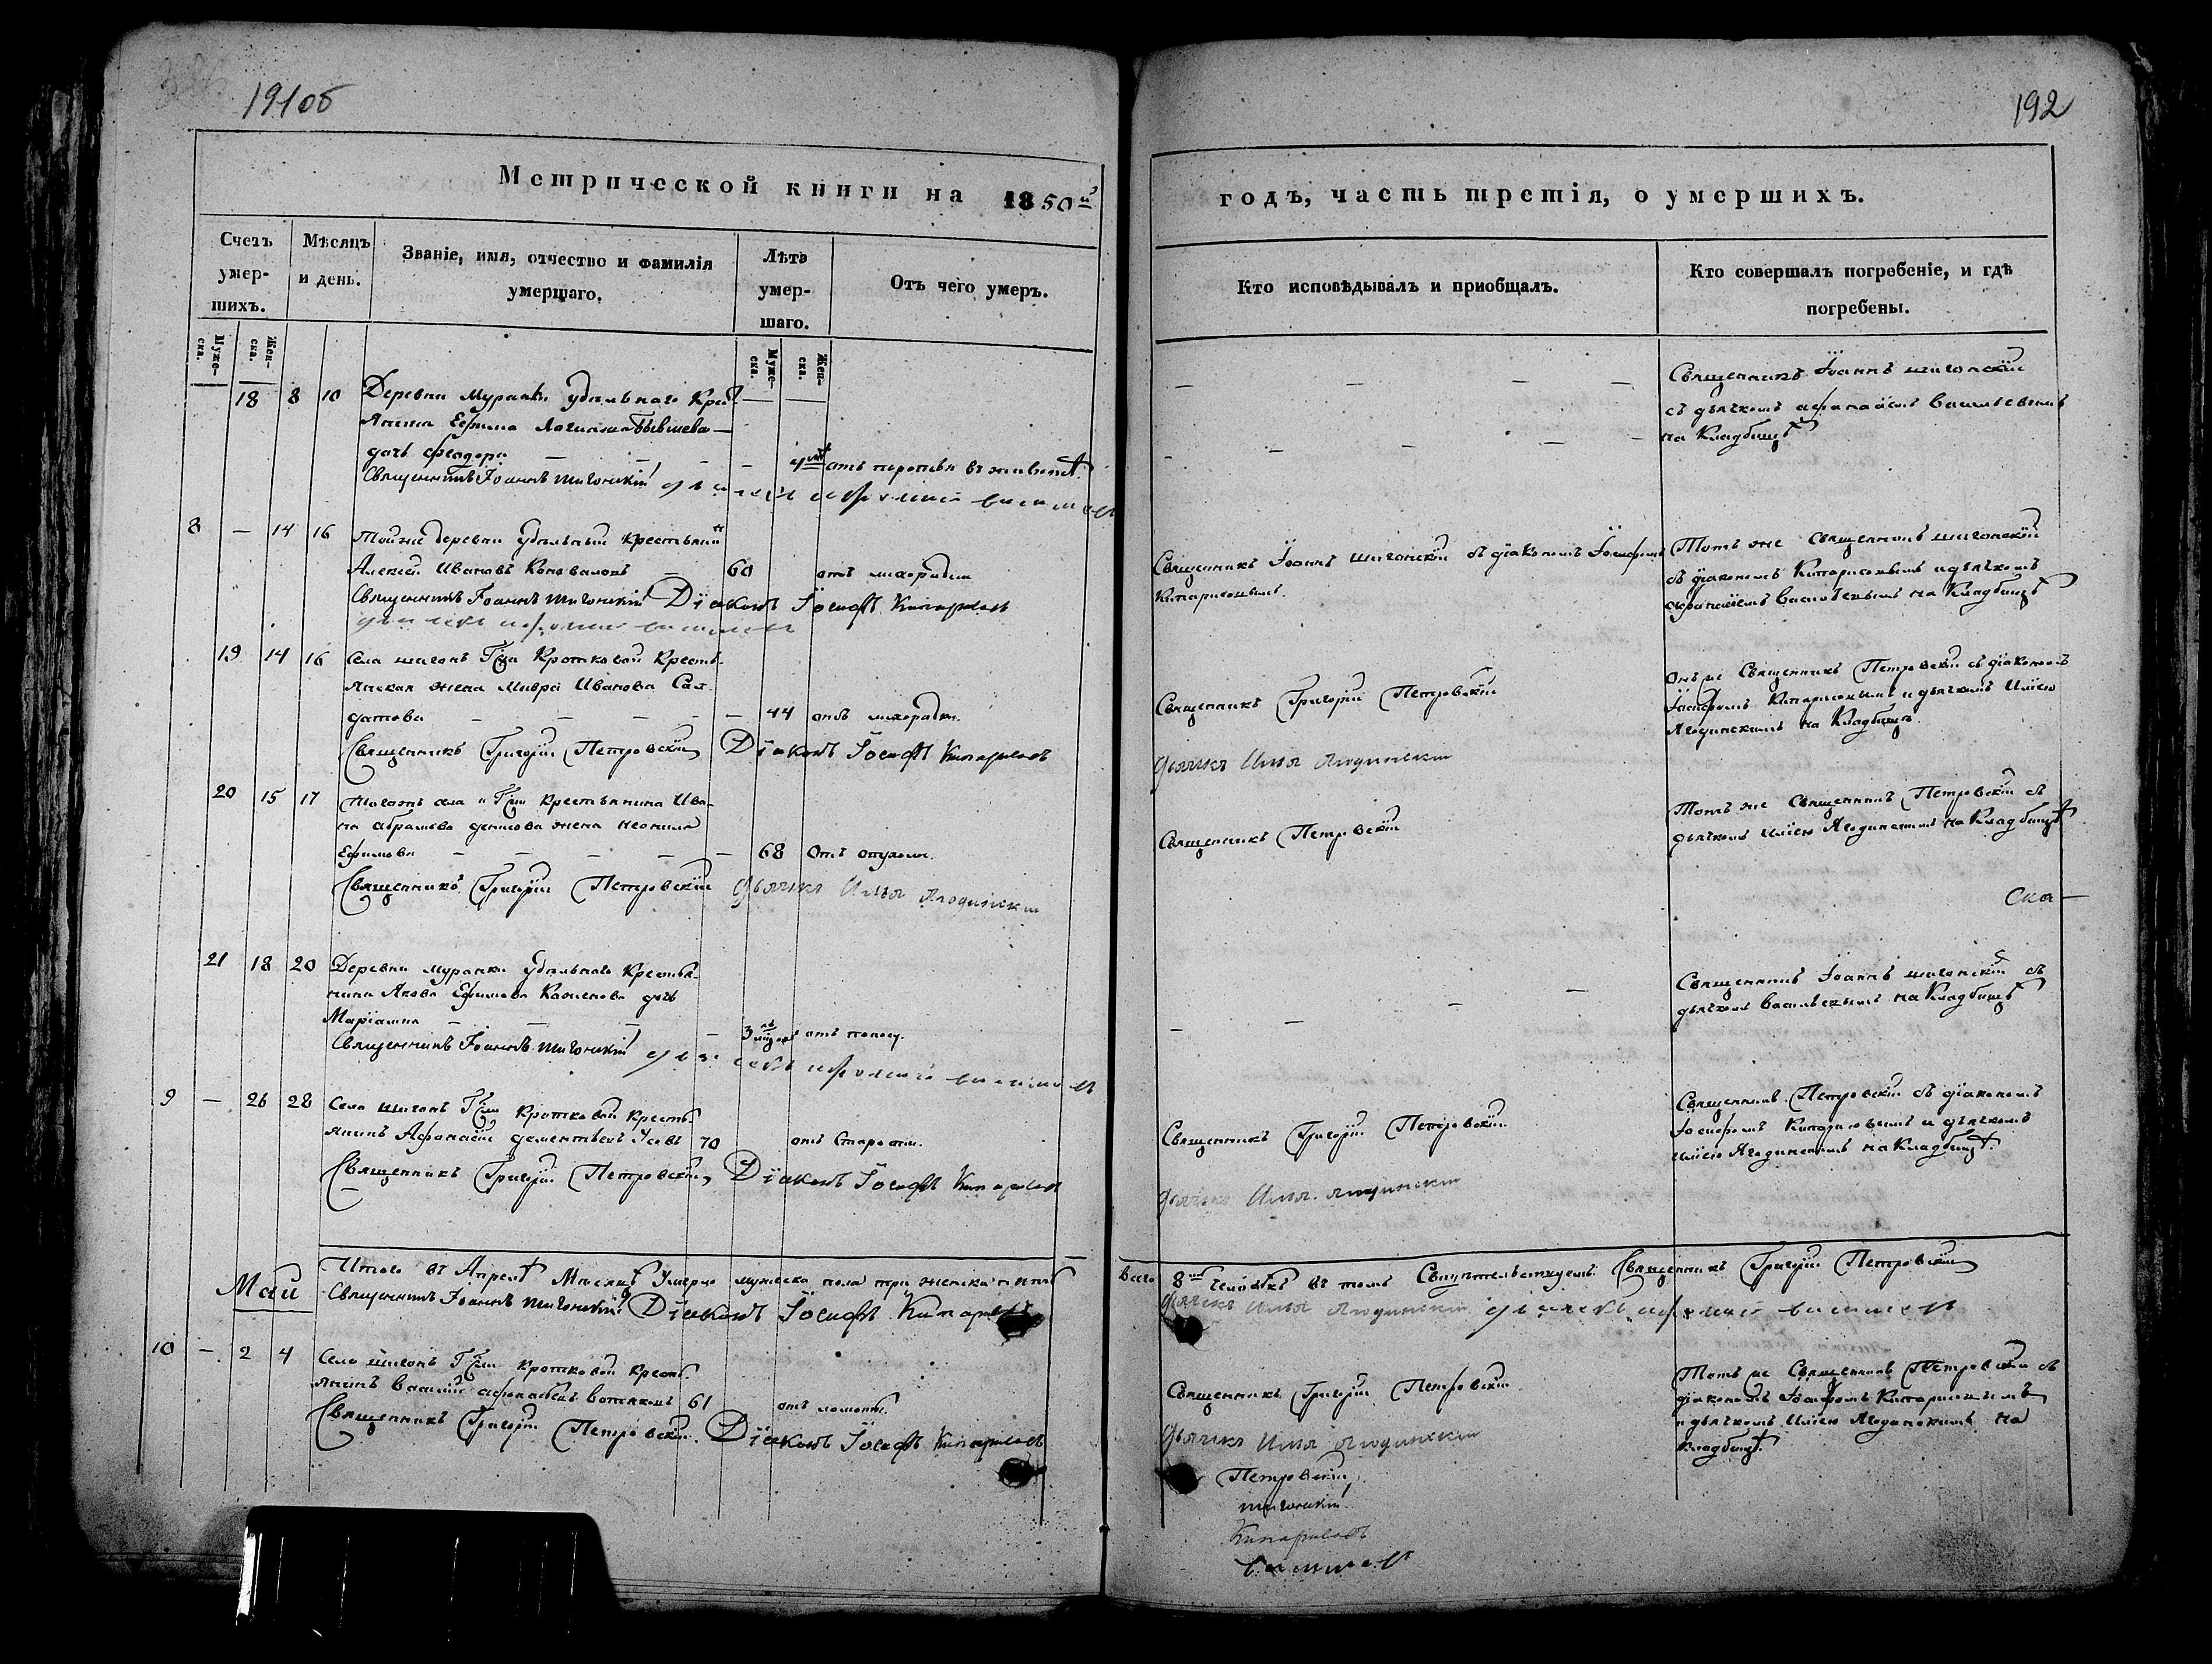 191об
192
Метрической книги на 1850й
годъ, часть третія, о умершихъ.
Счетъ умер-шихъ.
Мѣсяцъ и день.
Званіе, имя, отчество и фамилія умершаго.
Лѣта умер-шаго.
Отъ чего умеръ.
Кто исповѣдывалъ и приобщалъ.
Кто совершалъ погребеніе, и гдѣ погребены.
Муже-ска.
Жен-ска.
Муже-ска.
Жен-ска.
18 8 10 Деревни Муранки удѣльнаго Крес
янина Ефима
дочь Ѳеодора
Священникъ Іоаннъ Шигонскій
Священникъ Іоаннъ Шигонскій
съ дьячкомъ Афанасіемъ Васильевымъ
на Кладбищѣ
8 — 14 16 Тойже деревни удѣльный крестьянин
Алексей Ивановъ Коновалов — 60 отъ лихорадки
Священникъ Іоаннъ Шигонскій Діаконъ Іосифъ Кипарисовъ
Священникъ Іоаннъ Шигонскій съ діакономъ Іосифомъ
Кипарисовымъ.
Тотъ же Священникъ Шигонскій
съ діакономъ Кипарисовымъ и дьячкомъ
Афанасіемъ Васильевымъ на Кладбищѣ
19 14 16 Села Шигонъ Гжи Кротковой Кресть-
янская жена Мавра Иванова Сал-
датова — 44 отъ лихорадки.
Священникъ Григорій Петровскій Діаконъ Іосифъ Кипарисовъ
Священникъ Григорій Петровскій
Дьячекъ Илья Ягодинскій
Священникъ Петровскій съ діакономъ
Іосифомъ Кипарисовымъ и дьячкомъ Ильею
Ягодинскимъ на Кладбищѣ.
20 15 17 села и Гжи крестьянина Ива-
на Абрамова жена Неонила
Ефимова — 68 Отъ опухоли.
Священникъ Григорій Петровскій Дьячекъ Илья Ягодинскій
Священникъ Петровскій
Тотъ же Священникъ Петровскій съ
дьячкомъ Ильею Ягодинскимъ на Кладбищѣ
Ска—
21 18 20 Деревни Муранки удѣльнаго Крестья-
нина Якова Ефимова дочь
Маріамна — 3 отъ поносу.
Священникъ Іоаннъ Шигонскій
Священникъ Іоаннъ Шигонскій съ
дьячкомъ Васильевымъ на Кладбищѣ
9 — 26 28 Села Шигонъ Гжи Кротковой Кресть-
янинъ Афонасій Дементьевъ 70 отъ Старости.
Священникъ Григорій Петровскій Діаконъ Іосифъ Кипарисовъ
Священникъ Григорій Петровскій
Дьячекъ Илья Ягодинскій
Священникъ Петровскій съ діакономъ
Іосифомъ Кипарисовымъ и дьячкомъ
Ильею Ягодинскимъ на Кладбищѣ.
Итого въ Апрелѣ Месяцѣ Умерло мужеска пола три женска пять
Всего 8 человѣкъ въ томъ Свидѣтельствуемъ Священникъ Григорій Петровскій
Май
Священникъ Іоаннъ Шигонскій Діаконъ Іосифъ Кипарисовъ
Дьячекъ Илья Ягодинскій
10 — 2 4 Села Шигонъ Гжи Кротковой Кресть-
янинъ Василій 61 отъ ломоты.
Священникъ Григорій Петровскій. Діаконъ Іосифъ Кипарисовъ
Священникъ Григорій Петровскій
Дьячекъ Илья Ягодинскій
Священникъ Петровскій съ
діакономъ Іосифомъ Кипарисовымъ
и дьячкомъ Ильею Ягодинскимъ на
Кладбищѣ.
Петровскій
Шигонскій
Кипарисовъ
Васильевъ